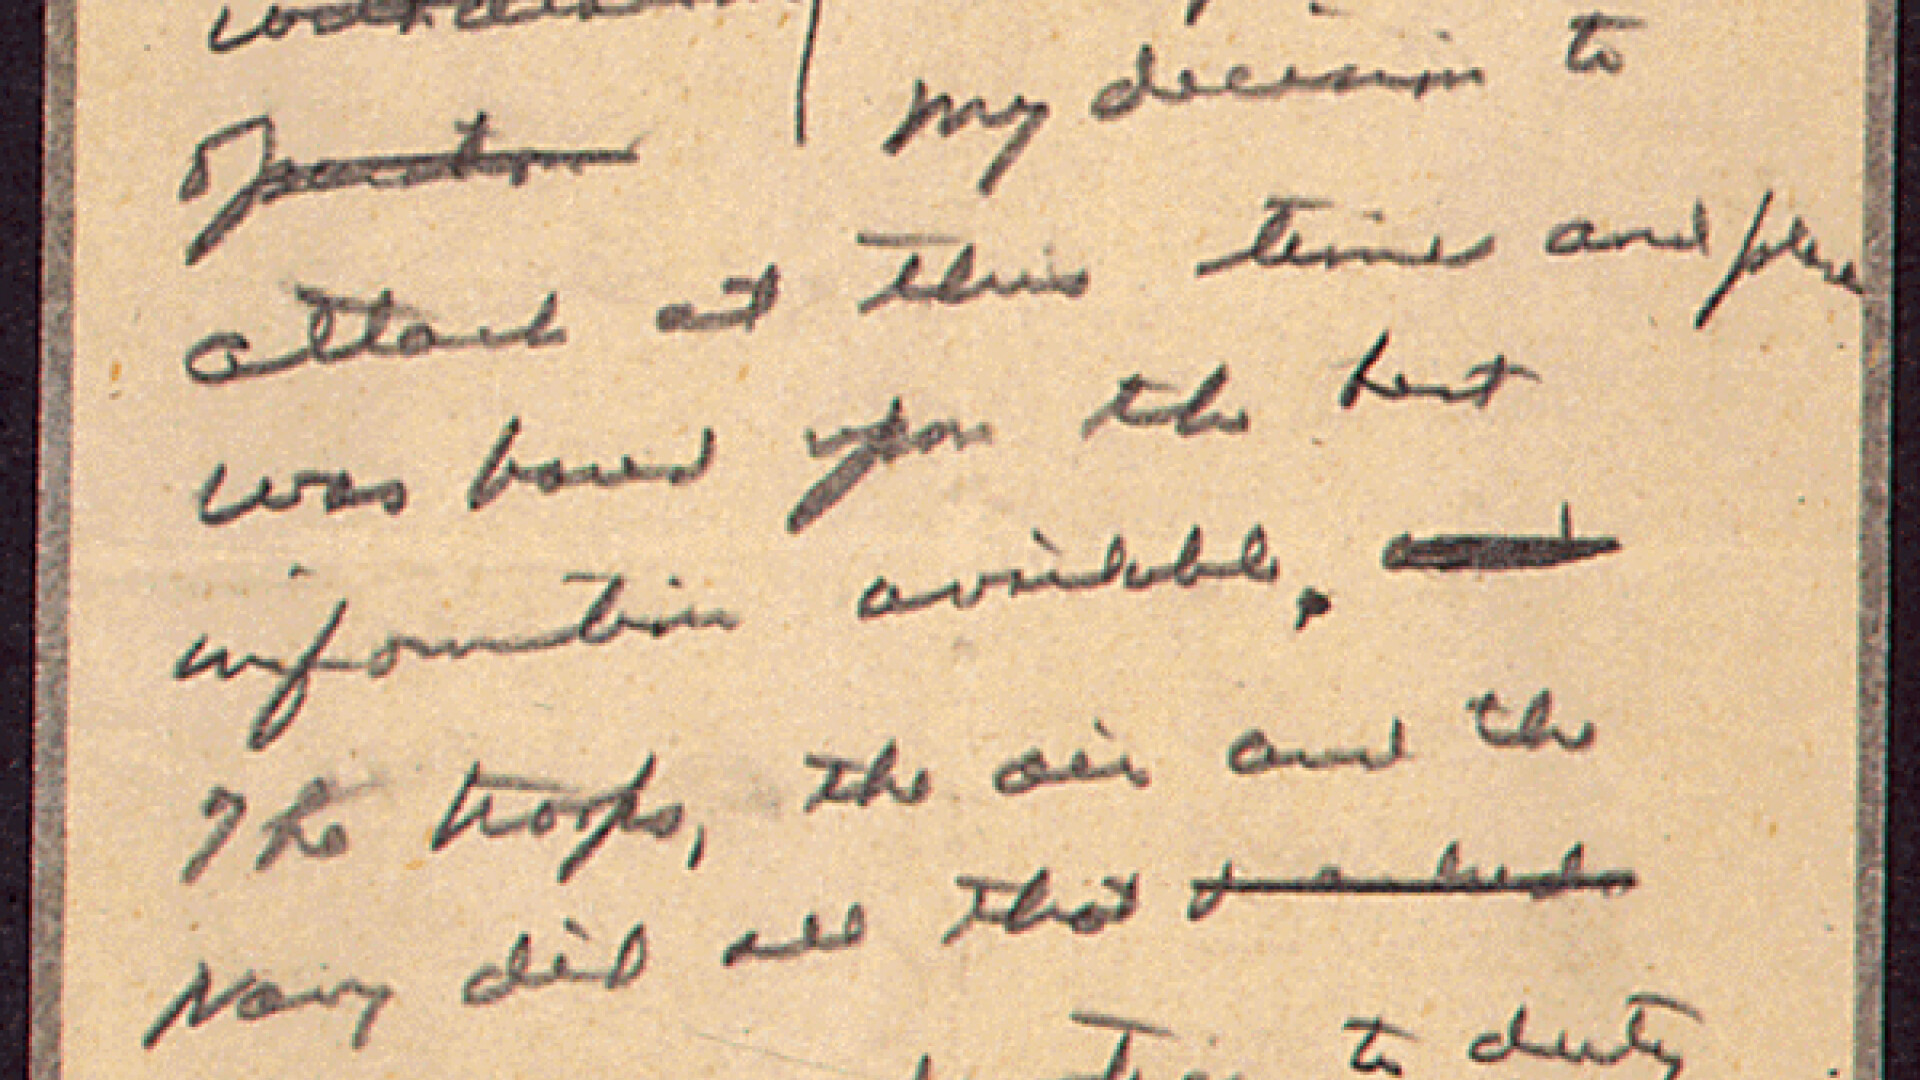 withdrawn
operation | My decision to
attack at this time and place
was based upon the best
information available. and
The troops, the air and the
Navy did all that
to duty